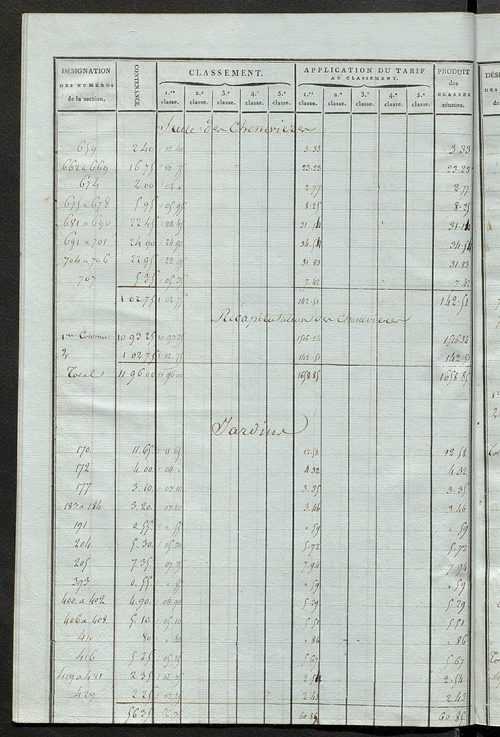 DÉSIGNATION DES NUMÉROS de la section. CONTENANCE. CLASSEMENT. APPLICATION DU TARIF AU CLASSEMENT. PRODUIT des CLASSES réunies.
1.re classe. 2.e classe. 3.e classe. 4.e classe. 5.e classe. 1.re classe. 2.e classe. 3.e classe. 4.e classe. 5.e classe.
Suite des Chenevieres
659 2 40 2 40 3.33 3.33
662 a 669 16 75 16 75 23.23 23.23
674 2 00 02 0 2.77 2.77
675 a 678 5 95 05 95 8.25 8.25
681 a 690 22 45 22 45 31.14 31.14
691 a 701 24 90 24 90 34.54 34.54
704 a 706 22 95 22 95 31.83 31.83
707 5 35 05 35 7.42 7.42
1 02 75 1 02 75 142.51 142.51
Récapitulation des Chenevieres
1re Colonne 10 93 25 10 93 25 1516.34 1516.34
2e 1 02 75 1 02 75 142.51 142.51
Total 11 96 00 11 96 00 1658.85 1658.85
Jardins
170. 11.65 11 65 12.58 12.58
172 4.00 04 0 4.32 4.32
177 3.10 03 10 3.35 3.35
183 a 184 3.20 03 20 3.46 3.46
191 0.55 55 .59 .59
204 5.30 05 30 5.72 5.72
205 7.35 07 35 7.94 7.94
393 0.55 55 .59 .59
400 a 402 4.90 04 90 5.29 5.29
406 a 408 5.10 05 10 5.51 5.51
410 80 80 .86 .86
416 5 25 05 25 5.67 5.67
419 a 421 2 35 02 35 2.54 2.54
429 2 25 02 25 2.43 2.43
56 35 60.86 60.86